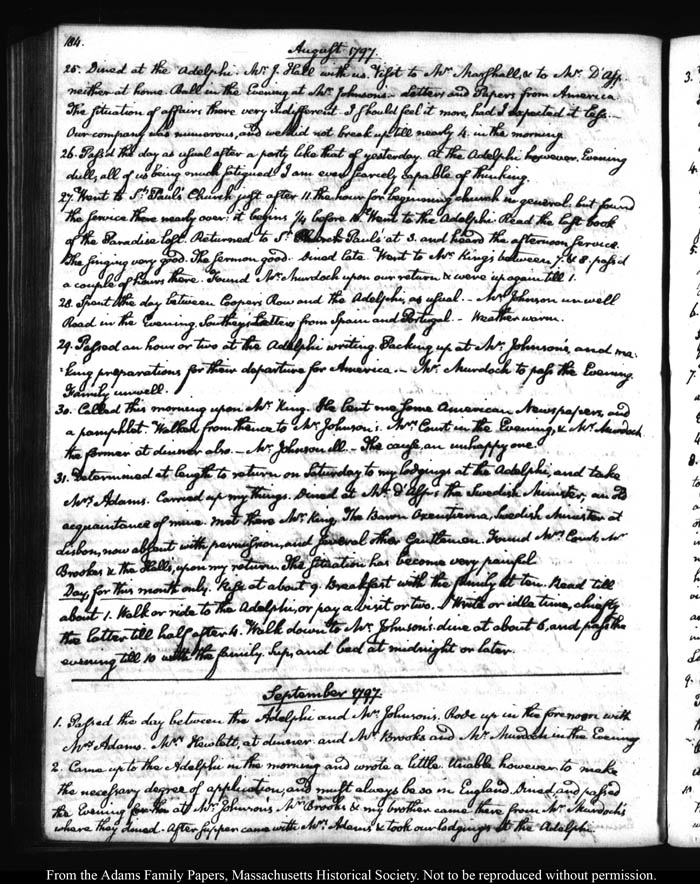 184.
August 1797.
25. Dined at the Adelphi. Mr. J. Hall with us. Visit to Mr. Marshall, & to Mr. D'Asp.
neither at home. Ball in the Evening at Mr. Johnson's. Letters and Papers from America.
The situation of affairs there very indifferent. I should feel it more, had I expected it less.—
Our company was numerous, and we did not break up till nearly 4. in the morning.
26. Passed the day as usual after a party like that of yesterday. At the Adelphi however. Evening
dull, all of us being much fatigued. I am even scarcely capable of thinking.
27. Went to St. Paul's Church just after 11. the hour for beginning church in general. but found
the service there nearly over: it begins 1/4 before 10. Went to the Adelphi. Read the last book
of the Paradise lost. Returned to St. Paul's at 3. and heard the afternoon service.
The singing very good. The sermon good. Dined late. Went to Mr. King's between 7. & 8. pass'd
a couple of hours there. Found Mr. Murdock upon our return. & were up again till 1.
28. Spent the day between Coopers Row and the Adelphi, as usual.— Mr. Johnson unwell
Read in the Evening, Southey's Letters from Spain and Portugal.— Weather warm.
29. Passed an hour or two at the Adelphi writing. Packing up at Mr. Johnson's, and ma-
king preparations for their departure for America.— Mr. Murdock to pass the Evening.
Family unwell.
30. Called this morning upon Mr. King. He lent me some American Newspapers, and
a pamphlet. Walked from thence to Mr. Johnson's. Mrs. Court in the Evening, & Mr. Murdock
the former at dinner also.— Mr. Johnson ill.— The cause, an unhappy one.
31. Determined at length to return on Saturday to my lodgings at the Adelphi, and take
Mrs. Adams. Carried up my things. Dined at Mr. D'Asp's the Swedish Minister, an old
acquaintance of mine. Met there Mr. King, The Baron Oxenstierna, Swedish Minister at
Lisbon, now absent with permission, and several other Gentlemen. Found Mrs. Court Mr.
Brooks & the Halls, upon my return. The situation has become very painful.
Day, for this month only. Rise at about 9. Breakfast with the family at ten. Read till
about 1. Walk or ride to the Adelphi, or pay a visit or two. Write or idle time, chiefly
the latter till half after 4. Walk down to Mr. Johnson's. dine at about 6, and pass the
evening till 10 with the family. Sup, and bed at midnight or later.
September 1797.
1. Passed the day between the Adelphi and Mr. Johnson's. Rode up in the forenoon with
Mrs. Adams. Mrs. Hewlett, at dinner. and Mr. Brooks and Mr. Murdock in the Evening
2. Came up to the Adelphi in the morning and wrote a little. Unable however to make
the necessary degree of application, and must always be so in England. Dined, and passed
the Evening at Mr. Johnson's. Mr. Brooks & my brother came there from Mr. Murdock's
where they dined. After supper came with Mrs. Adams & took our lodgings at the Adelphi.
From the Adams Family Papers, Massachusetts Historical Society. Not to be reproduced without permission.